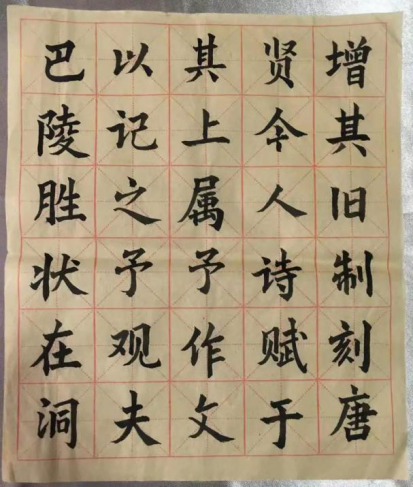 增其旧制刻唐
贤今人诗赋于
其上属予作文
以记之予观夫
巴陵胜状在洞